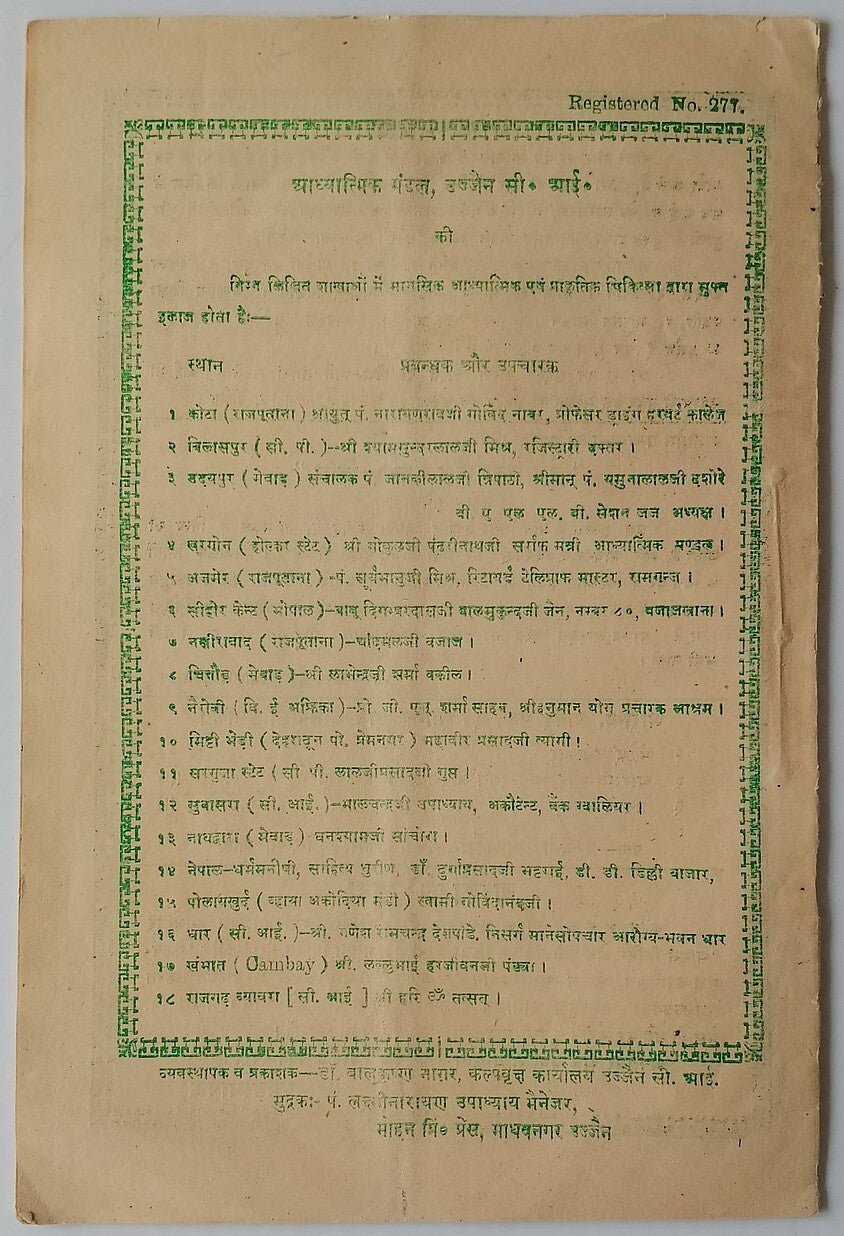 Registered No. 277.
आध्यात्मिक मंडल, उज्जैन सी॰ आई॰
की
निम्न लिखित शाखाओं में मानसिक आध्यात्मिक एवं प्राकृतिक चिकित्सा द्वारा मुफ्त
इलाज होता है:—
स्थान प्रबन्धक और उपचारक
१ कोटा (राजपूताना) श्रीयुत् पं. नारायणरावजी गोविंद नावर, प्रोफेसर ड्राइंग हरबर्ट कालेज
२ बिलासपुर ( सी. पी. )--श्री श्यामसुन्दरलालजी मिश्र, रजिस्टारी दफ्तर ।
३ उदयपुर ( मेवाड़ ) संचालक पं. जानकीलालजी त्रिपाठी, श्रीमान् पं. यमुनालालजी दशोरे
बी ए एल एल. बी. सेशन जज अध्यक्ष ।
४ खरगोन ( होल्कर स्टेट ) श्री गोकुलजी पंढरीनाथजी सर्राफ मन्त्री आध्यात्मिक मण्डल ।
५ अजमेर ( राजपूताना ) -पं. सूर्यभानुजी मिश्र, रिटायर्ड टेलिग्राफ मास्टर, रामगन्ज ।
६ सीहोर केन्ट ( भोपाल )—बाबू दिगम्बरदासजी बालमुकुन्दजी जैन, नम्बर ८०, बजाजखाना ।
७ नसीराबाद ( राजपूताना )—चांदमलजी बजाज ।
८ चित्तौड़ ( मेवाड़ )—श्री लाभेन्द्रजी शर्मा वकील ।
९ नैरोबी ( बि. ई अफ्रिका )—प्रो जी. एल. शर्मा साहब, श्रीहनुमान योग प्रचारक आश्रम ।
१० मिट्टी भेड़ी ( देहरादून पो. प्रेमनगर ) महावीर प्रसादजी त्यागी !
११ सरगुजा स्टेट ( सी पी. लालजीप्रसादजी गुप्त ।
१२ सुवासरा ( सी. आई. )—भालचन्द्रजी उपाध्याय, अकौंटेन्ट, बैंक ग्वालियर ।
१३ नाथद्वारा ( मेवाड़ ) घनश्यामजी सांचोरा ।
१४ नेपाल—धर्ममनीषी, साहित्य धुरीण, डॉ. दुर्गाप्रसादजी भट्टराई, डी. डी. डिल्ली बाजार,
१५ पोलायखुर्द ( व्हाया अकोदिया मंडी ) स्वामी गोविंदानंदजी ।
१६ धार ( सी. आई. )—श्री. गणेश रामचन्द्र देशपांडे. निसर्ग मानसोपचार आरोग्य-भवन धार
१७ खंभात ( Cambay ) श्री. लल्लुभाई हरजीवनजी पंड्या ।
१८ राजगढ़ ब्यावरा [ सी. आई ] श्री हरि ॐ तत्सत् ।
व्यवस्थापक व प्रकाशक—डॉ. बालकृष्ण नागर, कल्पवृक्ष कार्यालय उज्जैन सी. आई.
मुद्रकः- पं. लक्ष्मीनारायण उपाध्याय मैनेजर,
मोहन प्रिं॰ प्रेस, माधवनगर उज्जैन